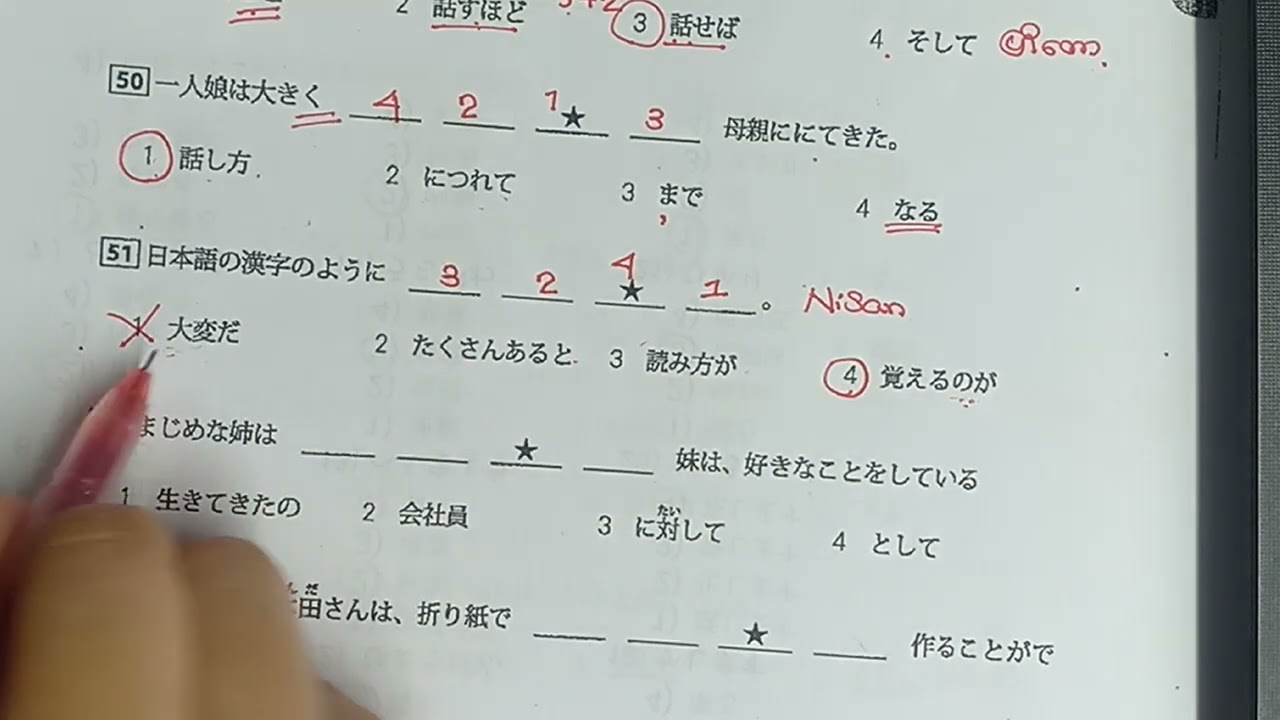 2 話すほど 3 話せば 4 そして
50 一人娘は大きく 4 2 1 ★ 3 母親ににてきた。
1 話し方 2 につれて 3 まで 4 なる
51 日本語の漢字のように 3 2 4 ★ 1 。 NiSan
1 大変だ 2 たくさんあると 3 読み方が 4 覚えるのが
まじめな姉は ★ 妹は、好きなことをしている
1 生きてきたの 2 会社員 3 に対して 4 として
たい
田さんは、折り紙で ★ 作ることがで